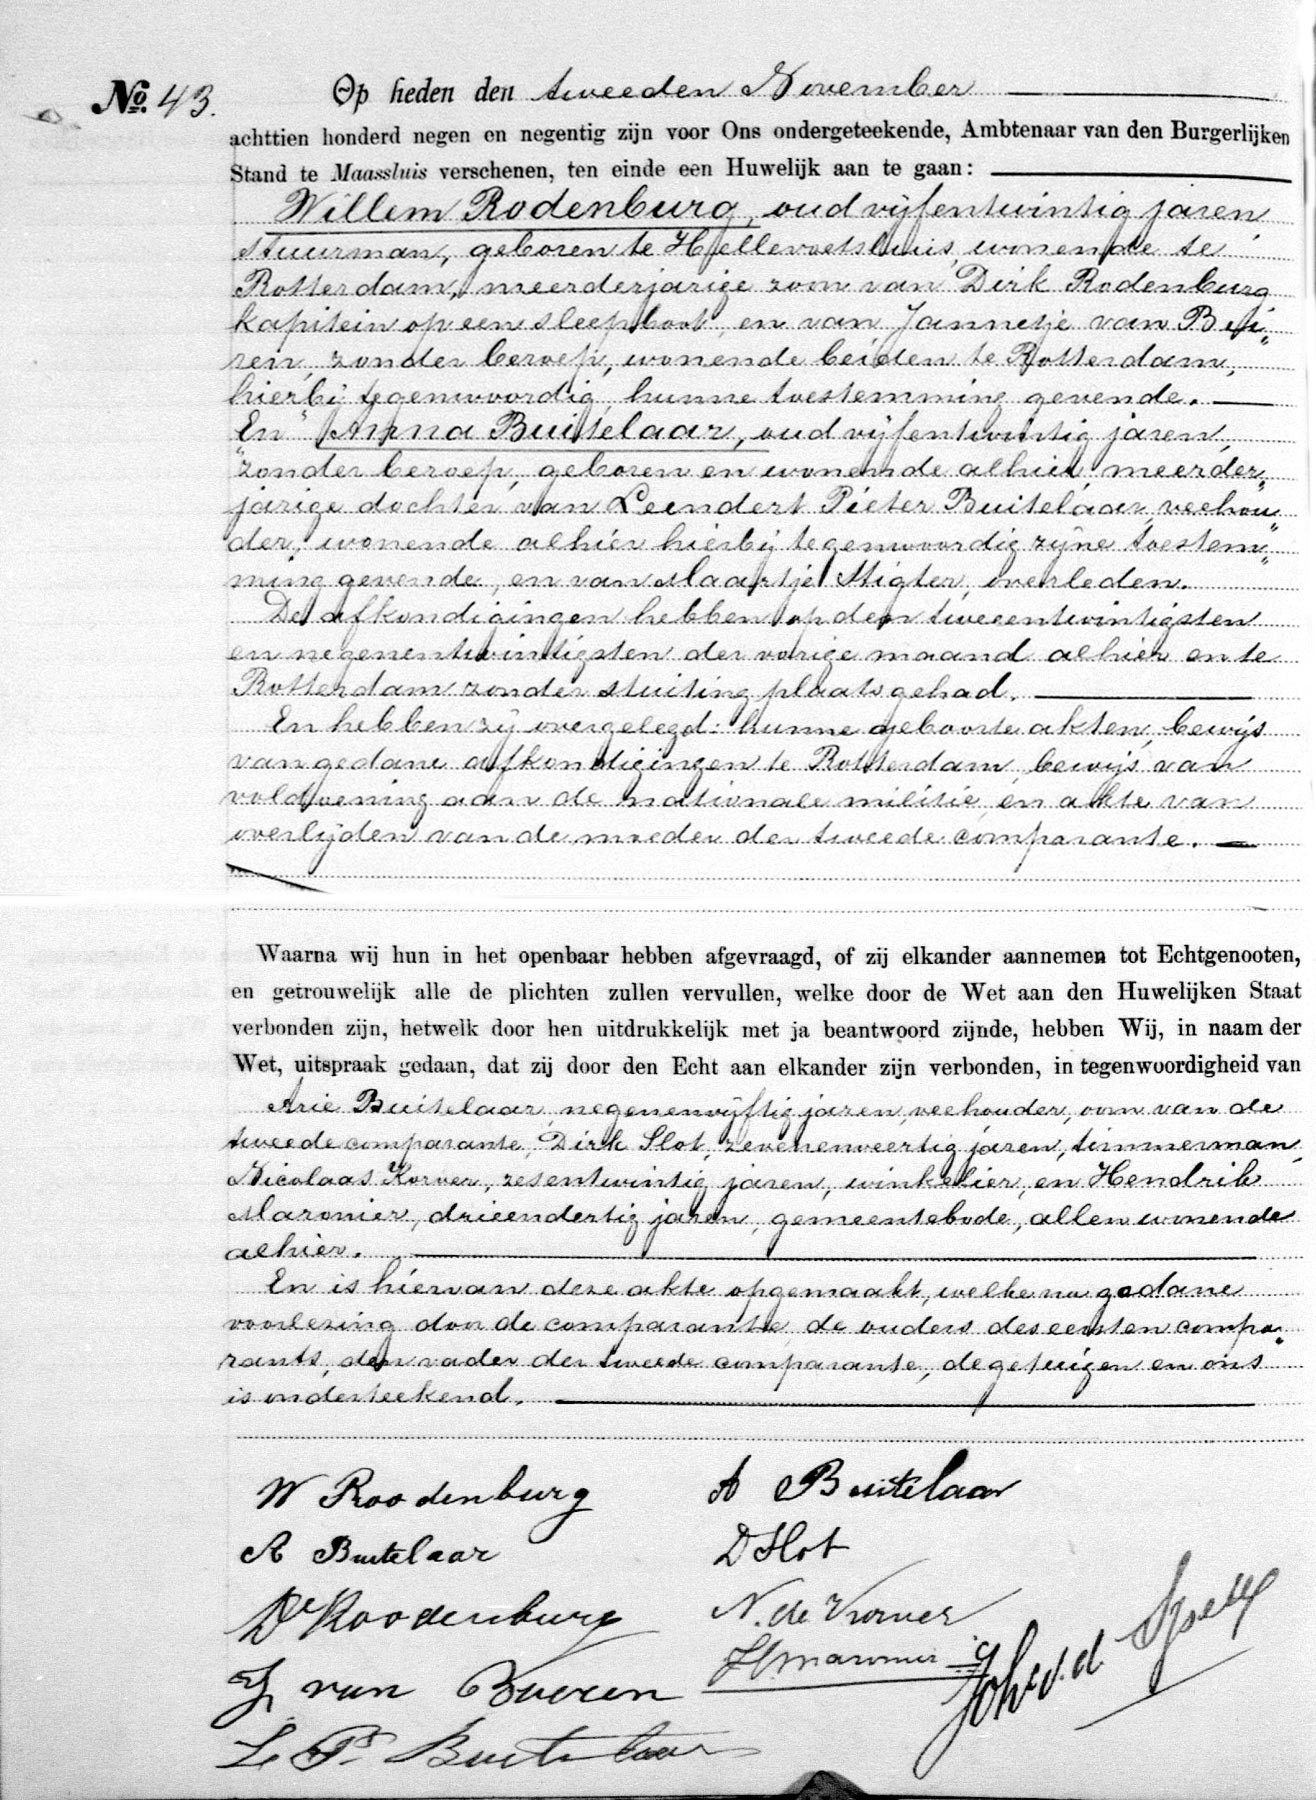 No. 43. Op heden den tweeden November
achttien honderd negen en negentig zijn voor Ons ondergeteekende, Ambtenaar van den Burgerlijken
Stand te Maassluis verschenen, ten einde een Huwelijk aan te gaan:
Willem Rodenburg, oud vijfentwintig jaren,
stuurman, geboren te Hellevoetsluis, wonende te
Rotterdam, meerderjarige zoon van Dirk Rodenburg
kapitein op een sleepboot, en van Jannetje van Bui„
ren, zonder beroep, wonende beiden te Rotterdam,
hierbij tegenwoordig, hunne toestemming gevende.
En Anna Buitelaar, oud vijfentwintig jaren,
zonder beroep, geboren en wonende alhier, meerder„
jarige dochter van Leendert Pieter Buitelaar, veehou„
der, wonende alhier hierbij tegenwoordig zijne toestem„
ming gevende, en van Maartje Stigter, overleden.
De afkondigingen hebben op den tweeentwintigsten
en negenentwintigsten der vorige maand alhier en te
Rotterdam zonder stuiting plaats gehad.
En hebben zij overgelegd: hunne geboorte akten, bewijs
van gedane afkondigingen te Rotterdam, bewijs van
voldoening aan de nationale militie, en akte van
overlijden van de moeder der tweede comparante.
Waarna wij hun in het openbaar hebben afgevraagd, of zij elkander aannemen tot Echtgenooten,
en getrouwelijk alle de plichten zullen vervullen, welke door de Wet aan den Huwelijken Staat
verbonden zijn, hetwelk door hen uitdrukkelijk met ja beantwoord zijnde, hebben Wij, in naam der
Wet, uitspraak gedaan, dat zij door den Echt aan elkander zijn verbonden, in tegenwoordigheid van
Arie Buitelaar, negenenvijftig jaren, veehouder, oom van de
tweede comparante, Dirk Slot, zevenenveertig jaren, timmerman,
Nicolaas Korver, zesentwintig jaren, winkelier, en Hendrik
Maronier, drieendertig jaren, gemeentebode, allen wonende
alhier.
En is hiervan deze akte opgemaakt, welke na gedane
voorlezing door de comparante, de ouders des eersten compa„
rants, den vader der tweede comparante, de getuigen en ons
is onderteekend.
W Roodenburg
A Buitelaar
A Buitelaar
D Slot
Dk Roodenburg
N. de Korver
J van Bueren
H. Maronier
L P Buitelaar
Joh. v. d.